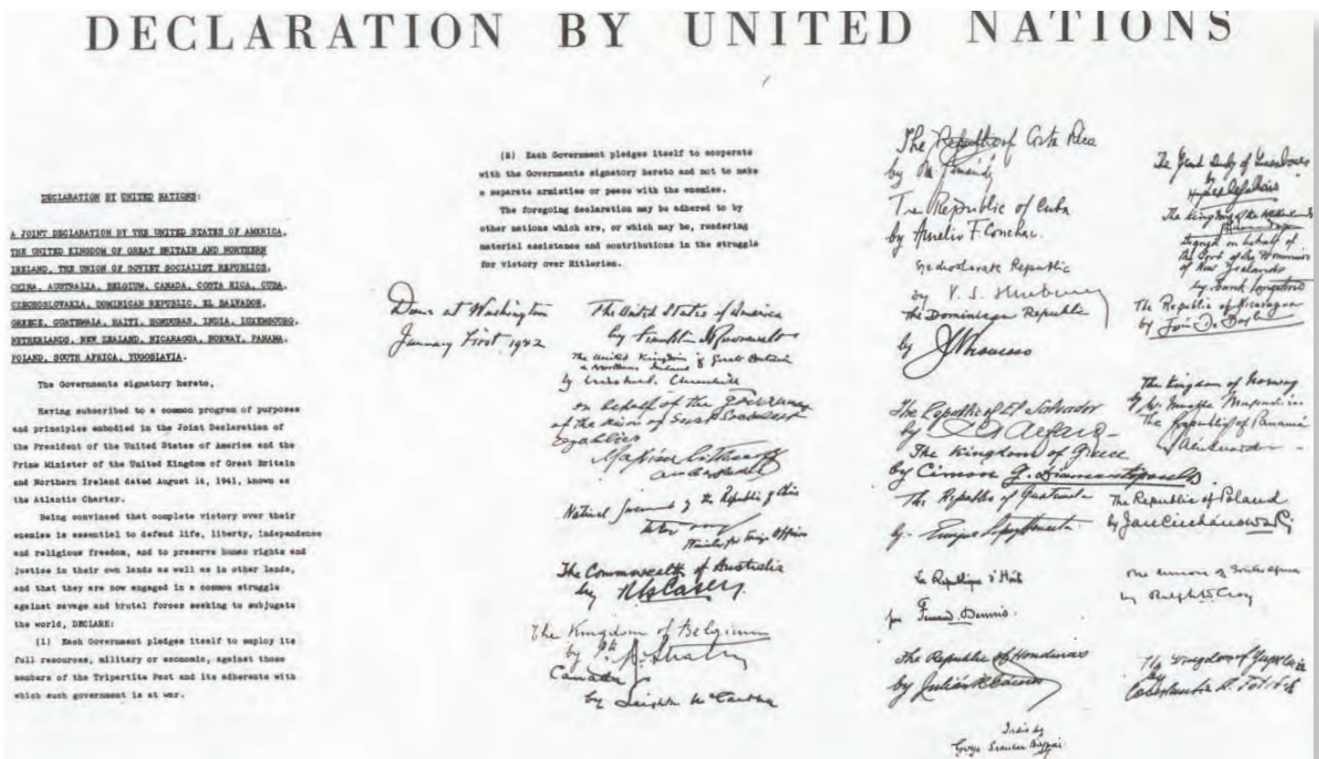 DECLARATION BY UNITED NATIONS
DECLARATION BY UNITED NATIONS:
A JOINT DECLARATION BY THE UNITED STATES OF AMERICA,
THE UNITED KINGDOM OF GREAT BRITAIN AND NORTHERN
IRELAND, THE UNION OF SOVIET SOCIALIST REPUBLICS,
CHINA, AUSTRALIA, BELGIUM, CANADA, COSTA RICA, CUBA,
CZECHOSLOVAKIA, DOMINICAN REPUBLIC, EL SALVADOR,
GREECE, GUATEMALA, HAITI, HONDURAS, INDIA, LUXEMBOURG,
NETHERLANDS, NEW ZEALAND, NICARAGUA, NORWAY, PANAMA,
POLAND, SOUTH AFRICA, YUGOSLAVIA.
The Governments signatory hereto,
Having subscribed to a common program of purposes
and principles embodied in the Joint Declaration of
the President of the United States of America and the
Prime Minister of the United Kingdom of Great Britain
and Northern Ireland dated August 14, 1941, known as
the Atlantic Charter.
Being convinced that complete victory over their
enemies is essential to defend life, liberty, independence
and religious freedom, and to preserve human rights and
justice in their own lands as well as in other lands,
and that they are now engaged in a common struggle
against savage and brutal forces seeking to subjugate
the world, DECLARE:
(1) Each Government pledges itself to employ its
full resources, military or economic, against those
members of the Tripartite Pact and its adherents with
which such government is at war.
(2) Each Government pledges itself to cooperate
with the Governments signatory hereto and not to make
a separate armistice or peace with the enemies.
The foregoing declaration may be adhered to by
other nations which are, or which may be, rendering
material assistance and contributions in the struggle
for victory over Hitlerism.
Done at Washington
January First 1942
The United States of America
by Franklin D Roosevelt
The United Kingdom of Great Britain
& Northern Ireland
by Winston S. Churchill
on behalf of the Government
of the Union of Soviet Socialist
Republics
Maxim Litvinoff
Ambassador
National Government of the Republic of China
Minister for Foreign Affairs
The Commonwealth of Australia
by R G Casey
The Kingdom of Belgium
by
Canada
by Leighton McCarthy
The Republic of Costa Rica
by
The Republic of Cuba
by Aurelio F. Concheso
Czechoslovak Republic
by V. S. Hurban
The Dominican Republic
by
The Republic of El Salvador
by C A Alfaro
The Kingdom of Greece
by Cimon G. Diamantopoulos
The Republic of Guatemala
by Enrique
La Republique d'Haiti
par Fernand Dennis
The Republic of Honduras
by Julián R Cáceres
India by
Girja Shankar Bajpai
The Grand Duchy of Luxembourg
by
The Kingdom of the Netherlands
Signed on behalf of
the Govt of the Dominion
of New Zealand
by Frank Langstone
The Republic of Nicaragua
by
The Kingdom of Norway
by
The Republic of Panamá
by
The Republic of Poland
by Jan Ciechanowski
The Union of South Africa
by Ralph W. Close
The Kingdom of Yugoslavia
by
Constantin A. Fotitch